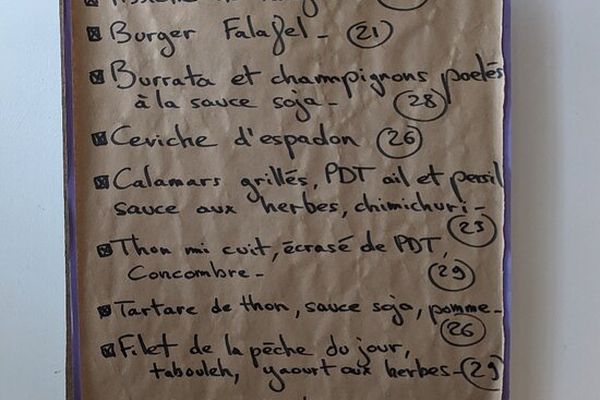 Burger Falafel - 21
Burrata et champignons poelés
à la sauce soja - 28
Ceviche d'espadon 26
Calamars grillés, PDT ail et persil
sauce aux herbes, chimichuri -
23
Thon mi cuit, écrasé de PDT,
Concombre - 29
Tartare de thon, sauce soja, pomme -
26
Filet de la pêche du jour,
tabouleh, yaourt aux herbes - 29